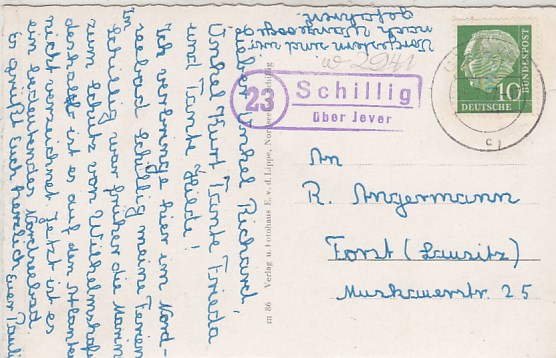 Vorgestern sind wir
nach Wangerooge
gefahren.
Lieber Onkel Richard,
Onkel Kurt, Tante Frieda
und Tante Hilde!
Ich verbringe hier im Nord-
seebad Schillig meine Ferien.
In Schillig war früher die Marine
zum Schutz von Wilhelmshafen
deshalb ist es auf den Atlanten
nicht verzeichnet. Jetzt ist es
ein bedeutendes Nordseebad
Es grüßt Euch herzlich Euer Pauli
m 86 Verlag u. Fotohaus E. v. d. Lippe, Nordseebad Schillig
w 2941
23
Schillig
über Jever
DEUTSCHE BUNDESPOST
10
c
An
R. Angermann
Forst (Lausitz)
Muskauerstr. 25